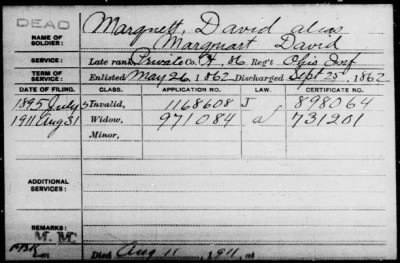 DEAD
NAME OF SOLDIER: Margnett, David alias
Marquart David
SERVICE: Late rank, Private Co. H. 86 Reg't Ohio Inf
TERM OF SERVICE: Enlisted May 26, 1862 Discharged Sept 25, 1862
DATE OF FILING. CLASS. APPLICATION NO. LAW. CERTIFICATE NO.
1895 July 5 Invalid, 1168608 J 898064
1911 Aug 31 Widow, 971084 a 731201
Minor,
ADDITIONAL SERVICES:
REMARKS:
M. M.
Died Aug 11, 1911, at